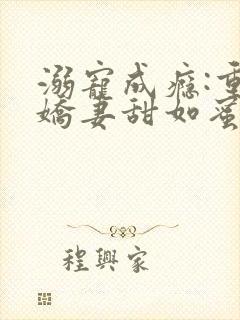 溺寵成癮:重
嬌妻甜如蜜
程興家